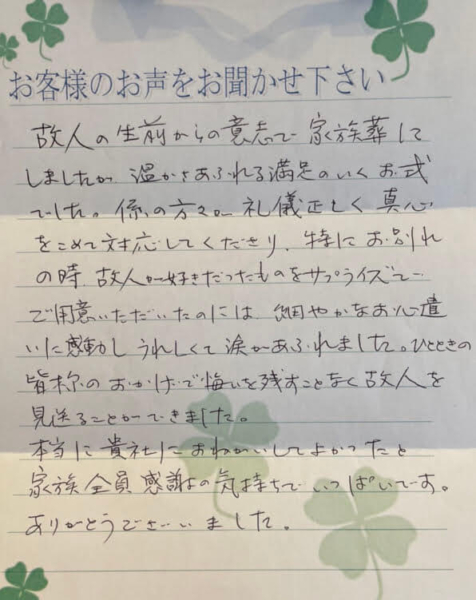 お客様のお声をお聞かせ下さい
故人の生前からの意志で家族葬にて
しましたが 温かさあふれる満足のいくお式
でした。係の方々が 礼儀正しく真心
をこめて対応してくださり、特にお別れ
の時、故人が好きだったものをサプライズで
ご用意いただいたのには、細やかなお心遣
いに感動し うれしくて涙があふれました。ひとときの
皆様のおかげで悔いを残すことなく故人を
見送ることができました。
本当に貴社におねがいしてよかったと
家族全員感謝の気持ちでいっぱいです。
ありがとうございました。